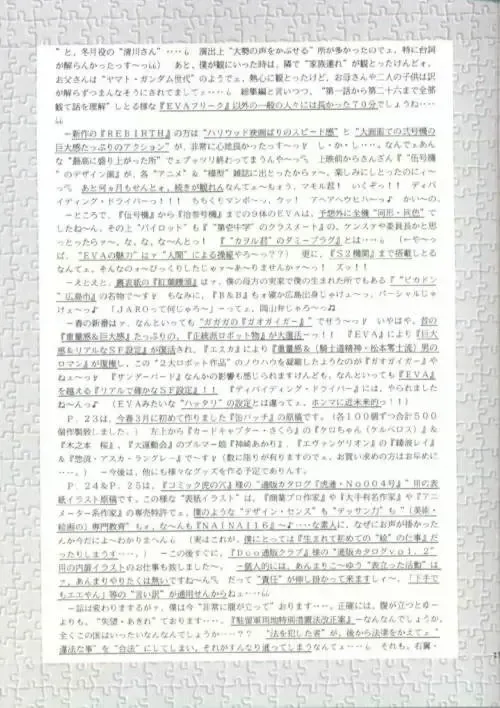 ”と、冬月役の“清川さん”‥‥６　演出上“大勢の声をかぶせる”所が多かったのでェ、特に台詞
が解らんかったっす～っ６６）　あと、僕が観にいった時は、隣で“家族連れ”が観とったけんどォ、
お父さんは“ヤマト・ガンダム世代”のようでェ、熱心に観とったけど、お母さんや二人の子供は訳
が解らずつまんなそうにされてましてェ‥‥６　総集編と言いつつ、“第一話から第二十六まで全部
観て話を理解”しとる様な『ＥＶＡフリーク』以外の一般の人々には長かった７０分でしょうね‥‥
－新作の『ＲＥＢＩＲＴＨ』の方は“ハリウッド映画ばりのスピード感”と“大画面での弐号機の
巨大感たっぷりのアクション”が、非常に心地良かったっす～っ♪　し・か・し‥‥。なんでェあん
な“最高に盛り上がった所”でェブッツリ終わってまうんや～っ　上映前からさんざん『“伍号機
”のデザイン画』が、各“アニメ”＆“模型”雑誌に出とったからァ～、楽しみにしとったのにィ～
っ　あと何ヵ月もせんとォ、続きが観れんなんてェ～ちょう、マモル君！　いくぞっ！！　ディバ
イディング・ドライバーっ！！！　ちちくりマンボ～っ、ケッ！　アヘアヘウヒハ～っ♪　かい～の。
－ところで、『伍号機』から『拾参号機』までの９体のＥＶＡは、予想外に全機“同形・同色”で
したね～ん。その上“パイロット”も『“第壱中学”のクラスメート』の、ケンスケや委員長かと思
っとったらァ～、な、な、な～んとっ！　『“カヲル君”のダミープラグ』とは‥‥６（－や～っ
ぱ、“ＥＶＡの魅力”はァ“人間”による操縦やろ～っ？？）　更に、『Ｓ２機関』まで搭載しとる
なんてェ、そんなのォ～びっくりしたじゃァ～あ～りませんかァ～っ！　ズッ！！
－えとえと、裏表紙の『紅葉饅頭』はァ、僕の母方の実家で僕の生まれた所でもある『“ピカドン
”広島市』の名物で～す♪　ちなみに、『Ｂ＆Ｂ』もォ確か広島出身じゃけぇ～っ、バーシャルじゃ
けェ～っ♪　（ＪＡＲＯって何じゃろ～♪－ってェ、岡山弁じゃろ～ね
－春の新番はァ、なんといっても“ガガガの『ガオガイガー』”でせう～っ♪　いやはや、昔の
『重量感＆巨大感』たっぷりの、『正統派ロボット物』が大復活～っ！！　『ＥＶＡ』により『巨大
感＆リアルなＳＦ設定』が復活され、『エスカ』により『重量感＆（騎士道精神・松本零士流）男の
ロマン』が復権し、この“２大ロボット作品”のノウハウを凝縮したようなのが『ガオガイガー』や
ねェ～っ。『サンダーバード』なんかの影響も感じられますけんども。なんといっても『ＥＶＡ』
を越える『リアルで確かなＳＦ設定』！！　『ディバイディング・ドライバー』には、やられました
ね～んっ♪　（ＥＶＡみたいな“ハッタリ”の設定とは違ってェ、ホンマに近未来的っ！！）
Ｐ．２３は、今春３月に初めて作りました『缶バッチ』の原稿です。（各１００個ずつ合計５００
個作製致しました。）　左上から『カードキャプター・さくら』の『ケロちゃん（ケルベロス）』＆
『木之本　桜』、『大運動会』のブルマー娘『神崎あかり』、『エヴァンゲリオン』の『綾波レイ』
＆『惣流・アスカ・ラングレー』で～す♪（数に限りが有りますのでェ、お買い求めの方はお早めに
‥‥。）　－今後は、他にも様々なグッズを作る予定でありんす。
Ｐ．２４＆Ｐ．２５は、『コミック虎の穴』様の“通販カタログ『虎通・Ｎｏ００４号』”用の表
紙イラスト原稿です。この様な“表紙イラスト”は、『商業プロ作家』や『大手有名作家』や『アニ
メーター系作家』の専売特許でェ、僕のような“デザイン・センス”も“デッサン力”も“（美術・
絵画の）専門教育”もォ、な～んも『ＮＡＩＮＡＩ１６～♪』‥‥な素人に、なぜにお声が掛かった
んか今だによ～わかりまへん６（実はこれが、僕にとっては『生まれて初めての“絵”の仕事』だ
ったりしまうす‥‥。）　－この後すぐに、『Ｄｃｏ通クラブ』様の“通販カタログｖｏｌ．２”
用の内扉イラストのお仕事も致しました～。　－個人的には、あんまりこ～ゆう“表立った活動”は
ァ、あんまりやりたくは無いですね～ん　だって“責任”が伸し掛かって来ますしィ～、『下手で
もエエやん』等の“言い訳”が通用せんからねェ‥‥６６
－話は変わりまするがァ、僕は今“非常に腹が立って”おります‥‥。正確には、腹が立つとゆ～
よりも、“失望・あきれ”ております‥‥。『駐留軍用地特別措置法改正案』－なんなんでしょうか、
全くこの国はいったいなんなんでしょうか‥‥？？　“法を犯した者”が、後から法律をかえてェ“
違法な事”を“合法”にしてしまい、それがすんなり通ってしまうなんてェ‥‥６　それも、右翼・